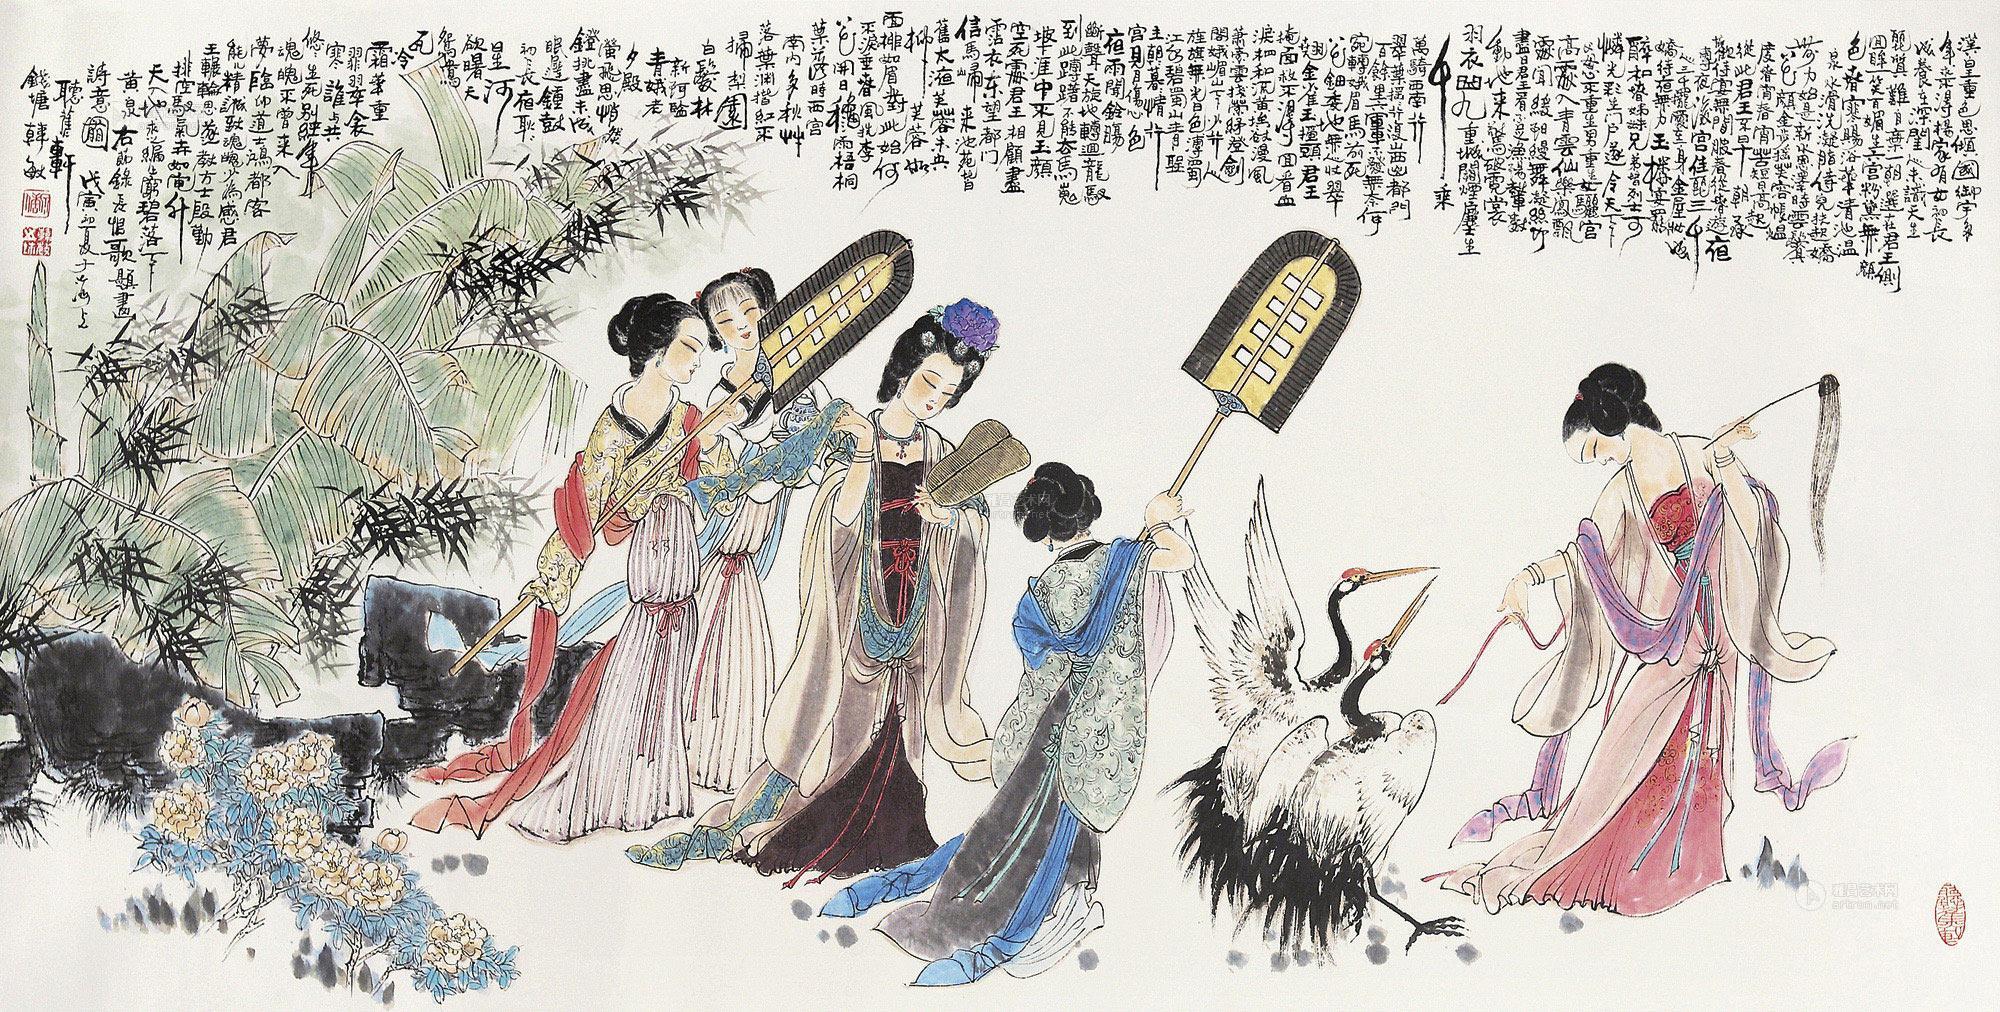 漢皇重色思傾國御宇多
年求不得楊家有女初長
成養在深閨人未識天生
麗質難自棄一朝選在君王側
回眸一笑百媚生六宮粉黛無顏
色春寒賜浴華清池溫
泉水滑洗凝脂侍兒扶起嬌
無力始是新承恩澤時雲鬢
花顏金步搖芙蓉帳暖
度春宵春宵苦短日高起
從此君王不早朝承
歡侍宴無閒暇春從春遊夜
專夜後宮佳麗三千
人三千寵愛在一身金屋妝成
嬌侍夜玉樓宴罷
醉和春姊妹兄弟皆列土可
憐光彩生門戶遂令天下
父母心不重生男重生女驪宮
高處入青雲仙樂風飄
處處聞緩歌縵舞凝絲竹
盡日君王看不足漁陽鼙鼓
動地來驚破霓裳
羽衣曲九重城闕煙塵生
千乘
萬騎西南行
翠華搖搖行復止西出都門
百餘里六軍不發無奈何
宛轉蛾眉馬前死
花鈿委地無人收翠
翹金雀玉搔頭君王
掩面救不得回看血
淚相和流黃埃散漫風
蕭索雲棧縈紆登劍
閣峨嵋山下少行人
旌旗無光日色薄蜀
江水碧蜀山青聖
主朝朝暮暮情行
宮見月傷心色
夜雨聞鈴腸
斷聲天旋地轉迴龍馭
到此躊躇不能去馬嵬
坡下泥中不見玉顏
空死處君王相顧盡
霑衣東望都門
信馬歸來池苑皆
舊太液芙蓉未央
柳芙蓉如
面柳如眉對此如何
不淚垂春風桃李
花開日秋雨梧桐
葉落時西宮
南內多秋草
落葉滿階紅不
掃梨園
白髮新椒房阿監
青娥老
夕殿
螢飛思悄然
孤燈挑盡未成
眠遲遲鐘鼓
初長夜耿耿
星河
欲曙天
鴛鴦
瓦冷
霜華重
翡翠衾
寒誰與共
悠悠生死別經年
魂魄不曾來入
夢臨邛道士鴻都客
能以精誠致魂魄為感君
王輾轉思遂教方士殷勤
覓排空馭氣奔如電升
天入地求之遍上窮碧落下
黃泉右節錄長恨歌題畫
詩意圖戊寅初夏于海上
聽蕉軒
錢塘韓敏
雅昌艺术网
artron.net